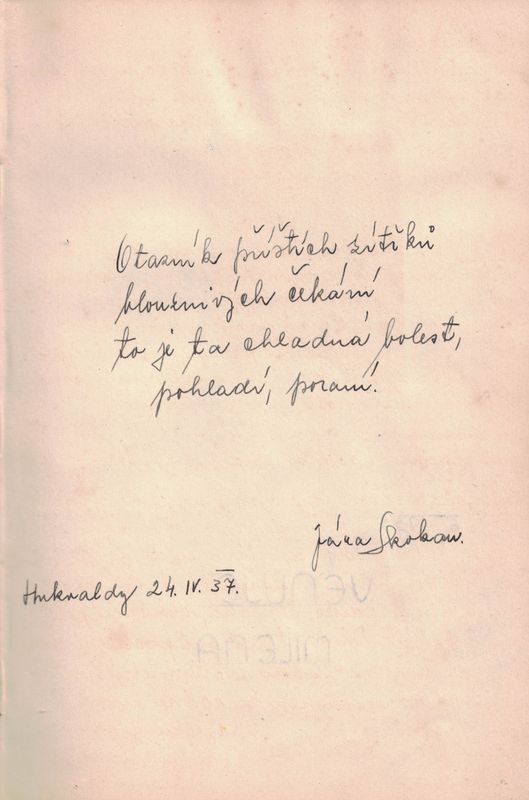 Otazník příštích zítřků
blouznivých čekání
to je ta chladná bolest,
pohladí, poraní.
Jára Skokan.
Hukvaldy 24. IV. 37.
VĚNUJE
MILENA